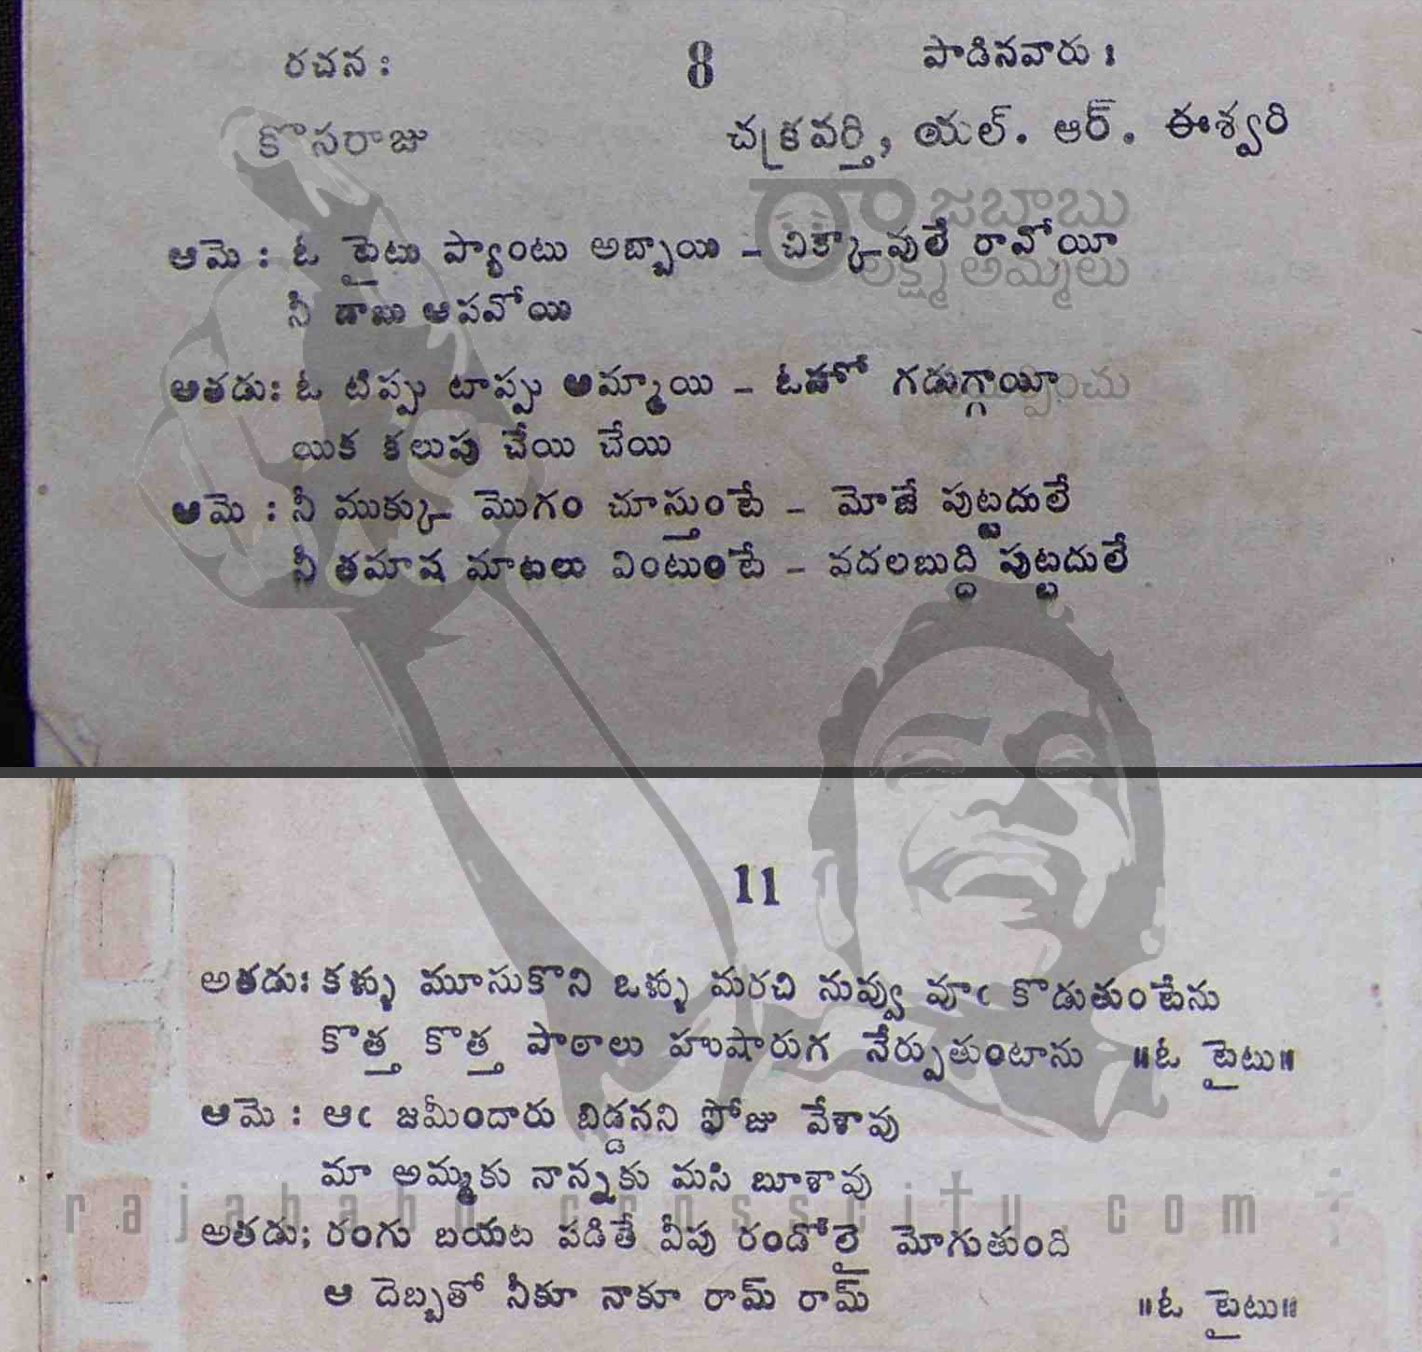 రచన : 8 పాడినవారు :
కొసరాజు చక్రవర్తి, యల్. ఆర్. ఈశ్వరి
రాజబాబు
లక్ష్మి అమ్మలు
ఆమె : ఓ టైటు ప్యాంటు అబ్బాయి - చిక్కావులే రావోయీ
నీ డాబు ఆపవోయి
అతడు: ఓ టిప్పు టాప్పు అమ్మాయి - ఓహో గడుగ్గాయీ
యిక కలుపు చేయి చేయి
ఆమె : నీ ముక్కు మొగం చూస్తుంటే - మోజే పుట్టదులే
నీ తమాష మాటలు వింటుంటే - వదలబుద్ది పుట్టదులే
11
అతడు: కళ్ళు మూసుకొని ఒళ్ళు మరచి నువ్వు వూఁ కొడుతుంటేను
కొత్త కొత్త పాఠాలు హుషారుగ నేర్పుతుంటాను ॥ఓ టైటు॥
ఆమె : ఆఁ జమీందారు బిడ్డనని ఫోజు వేశావు
మా అమ్మకు నాన్నకు మసి బూశావు
rajababu.crosscity.com
అతడు; రంగు బయట పడితే వీపు రండోలై మోగుతుంది
ఆ దెబ్బతో నీకూ నాకూ రామ్ రామ్ ॥ఓ టైటు॥